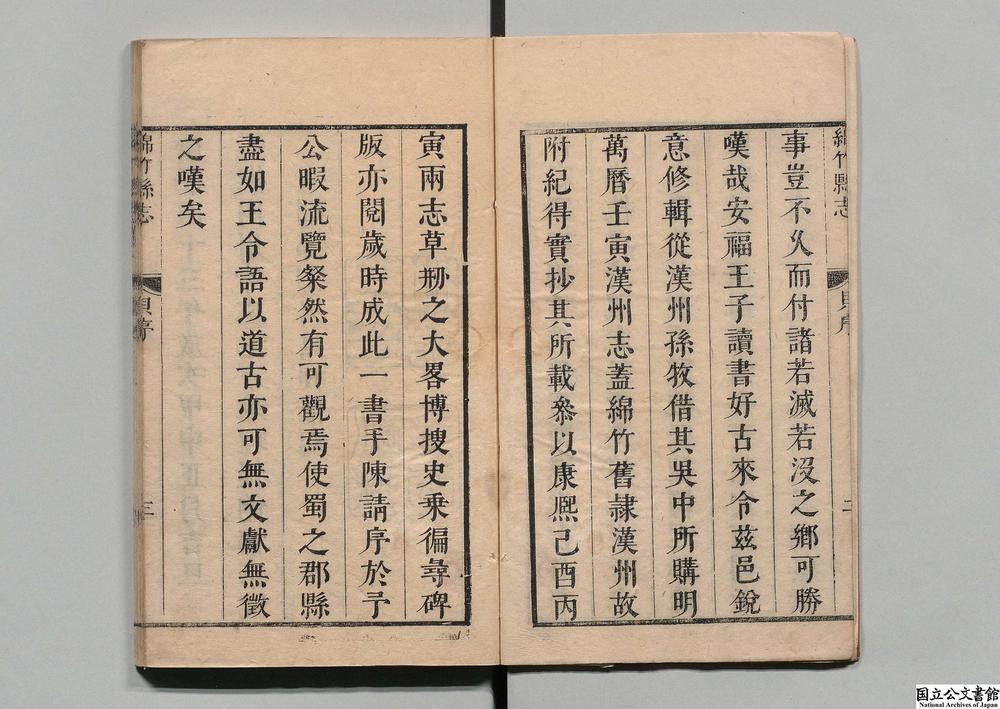 綿竹縣志
事豈不乆而付諸若滅若沒之鄉可勝
嘆哉安福王子讀書好古來令茲邑銳
意修輯從漢州孫牧借其吳中所購明
萬曆壬寅漢州志蓋綿竹舊隷漢州故
附紀得實抄其所載叅以康熈己酉丙
寅兩志草刱之大畧博搜史乗徧尋碑
版亦閱歲時成此一書手陳請序於予
公暇流覽粲然有可觀焉使蜀之郡縣
盡如王令語以道古亦可無文獻無徵
之嘆矣
綿竹縣志
三
国立公文書館
National Archives of Japan